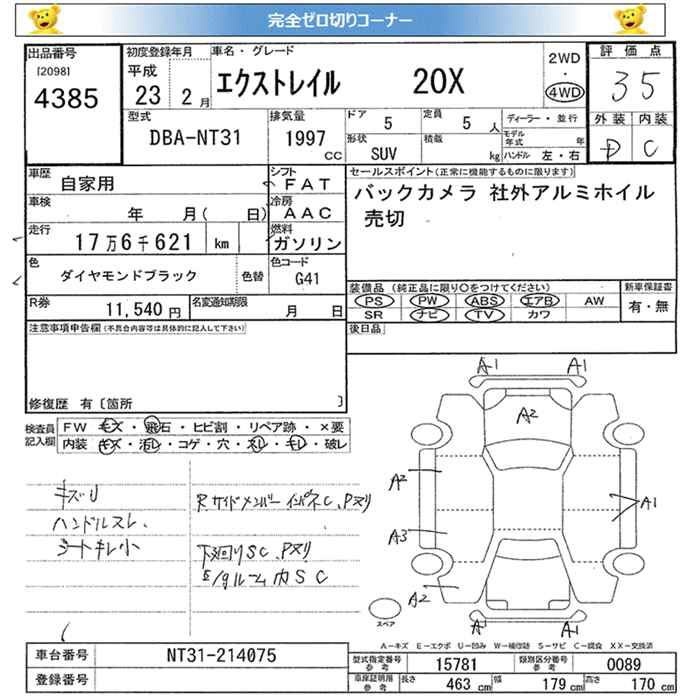 完全ゼロ切りコーナー
出品番号
[2098]
4385
初度登録年月
平成
23 2月
車名・グレード
エクストレイル 20X
2WD
・
4WD
評価点
35
外装 内装
D C
型式
DBA-NT31
排気量
1997 CC
ドア 5
定員 5人
形状 SUV
積載 kg
ディーラー・並行
モデル年式 年
ハンドル 左・右
車歴 自家用
シフト FAT
車検 年 月( 日)
冷房 AAC
走行 17万6千621 km
燃料 ガソリン
色 ダイヤモンドブラック 色替
色コード G41
R券 11,540円
名変通知期限 月 日
セールスポイント(正常に機能するものに限ります)
バックカメラ 社外アルミホイル
売切
装備品 (純正品に限り○をつけてください)
PS PW ABS エアB AW
SR ナビ TV カワ
新車保証書
有・無
後日品
注意事項申告欄(不具合内容等は具体的に記入して下さい)
修復歴 有〔箇所 〕
検査員記入欄
FW キズ・飛石・ヒビ割・リペア跡・×要
内装 キズ・汚レ・コゲ・穴・スレ・キレ・破レ
キズU
ハンドルスレ、
シートキレ小
Rサイドメンバー インパネC、Pヌリ
下廻りSC、Pヌリ
E/gルーム内SC
A1 A1
A2
A2
A1
A3
A2
A1 A1
スペア
A-キズ E-エクボ U-凹み W-補修跡 S-サビ C-腐食 XX-交換済
車台番号 NT31-214075
登録番号
型式指定番号 参考 15781
類別区分番号 参考 0089
車庫証明用 参考 長さ 463cm 幅 179cm 高さ 170cm